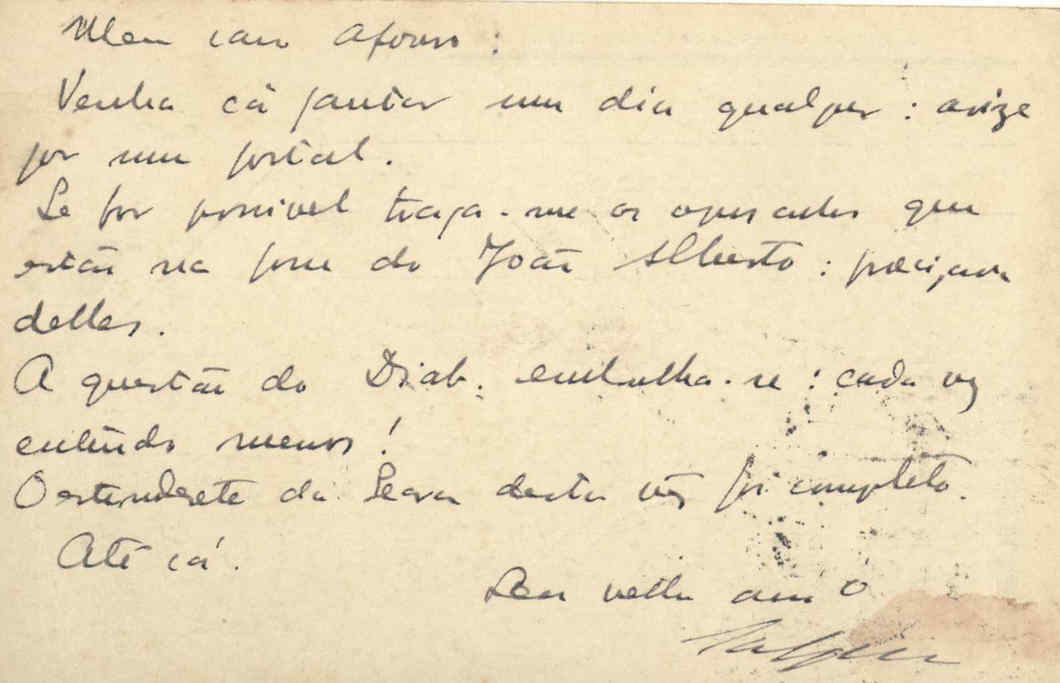 Meu caro Afonso:
Venha cá jantar um dia qualquer: avize
por um postal.
Se for possivel traga-me os opusculos que
estão na posse do João Alberto: preciso
delles.
A questão do Diab. embrulha-se: cada vez
entendo menos!
O estenderete da Seara desta vez foi completo.
Até cá.
Seu velho amº